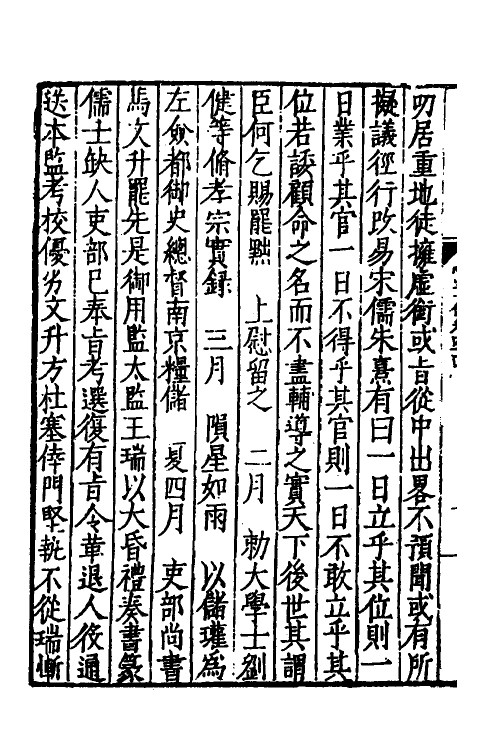 叨居重地徒擁虛銜或旨從中出畧不預聞或有所
擬議徑行改易宋儒朱熹有曰一日立乎其位則一
日業乎其官一日不得乎其官則一日不敢立乎其
位若諉顧命之名而不盡輔導之實天下後世其謂
臣何乞賜罷黜　上慰留之　二月　勅大學士劉
健等脩孝宗實録　三月　隕星如雨　以儲瓘爲
左僉都御史總督南京糧儲　夏四月　吏部尚書
馬文升罷先是御用監太監王瑞以大昏禮奏書篆
儒士缺人吏部已奉旨考選復有旨令革退人役通
送本監考校優劣文升方杜塞倖門堅執不從瑞慚